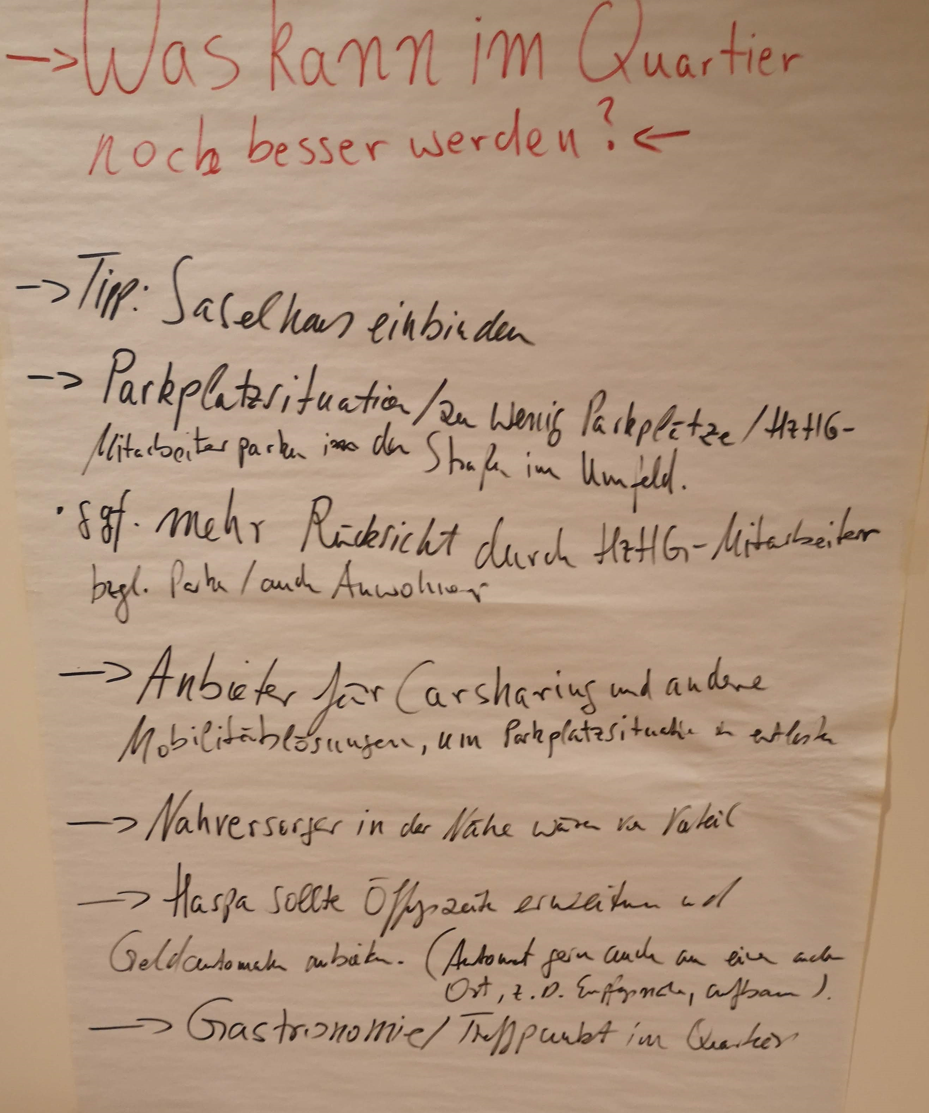 → Was kann im Quartier
noch besser werden? ←
→ Tipp: Saselhaus einbinden
→ Parkplatzsituation / zu wenig Parkplätze / HzHG-
Mitarbeiter parken in der Straße im Umfeld.
• ggf. mehr Rücksicht durch HzHG-Mitarbeiter
bzgl. Parken / auch Anwohner
→ Anbieter für Carsharing und andere
Mobilitätslösungen, um Parkplatzsituation zu entlasten
→ Nahversorger in der Nähe wären von Vorteil
→ Haspa sollte Öffgszeiten erweitern und
Geldautomaten anbieten. (Automat gern auch an einem anderen
Ort, z.B. aufbauen).
→ Gastronomie / Treffpunkt im Quartier